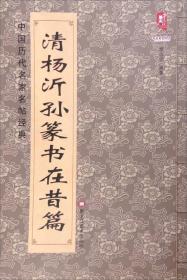 中国历代名家名帖经典
清杨沂孙篆书在昔篇